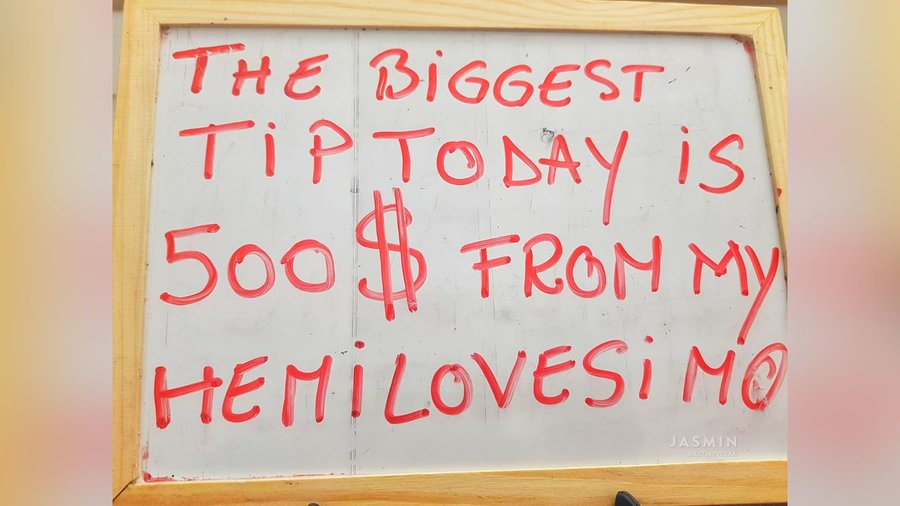 THE BiGGEST
TiP TODAY iS
500$ FROM MY
HEMiLOVESiMO
JASMIN